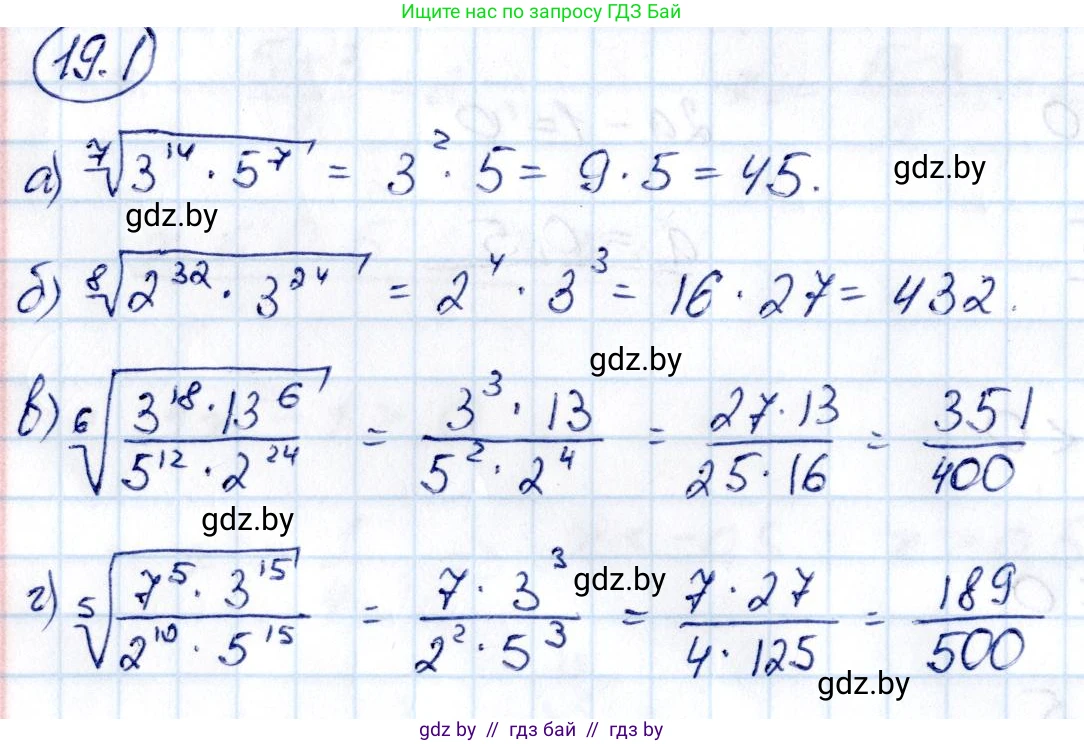 Ищите нас по запросу ГДЗ Бай
19.1
а) ⁷√(3¹⁴ · 5⁷) = 3² · 5 = 9 · 5 = 45. gdz.by
gdz.by
б) ⁸√(2³² · 3²⁴) = 2⁴ · 3³ = 16 · 27 = 432.
gdz.by
в) ⁶√((3¹⁸ · 13⁶)/(5¹² · 2²⁴)) = (3³ · 13)/(5² · 2⁴) = (27 · 13)/(25 · 16) = 351/400
gdz.by
г) ⁵√((7⁵ · 3¹⁵)/(2¹⁰ · 5¹⁵)) = (7 · 3³)/(2² · 5³) = (7 · 27)/(4 · 125) = 189/500
gdz.by
gdz.by
gdz.by // гдз бай // гдз by